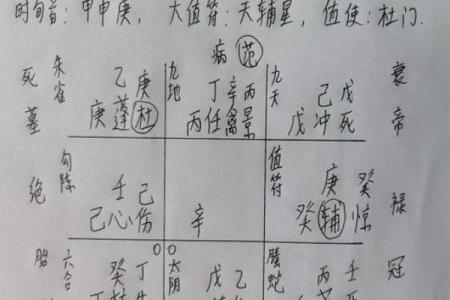 时旬首：甲申庚， 大值符：天辅星， 值使：杜门.
病 范
死 朱雀 乙 庚 九地 丁 辛 丙 九天 己 戊 衰
墓 庚 蓬 杜 丙 任 禽 景 戊 冲 死 帝
勾陈 壬 己 值符 庚 癸
绝 己 心 伤 辛 癸 辅 惊 禄
胎 六合 癸 丁 太阴 戊 乙 螣蛇 丙 壬 冠